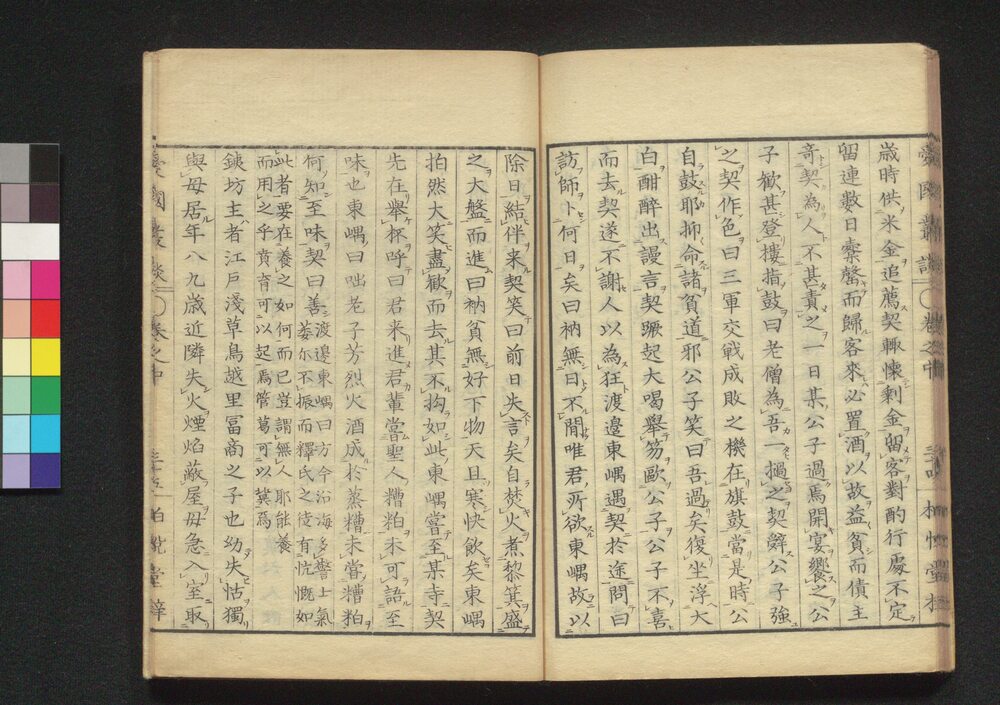 歳時供米金追薦契輙懐剰金留客對酌行處不定
留連數日槖罄而歸客來必置酒以故益貧而債主
奇契為人不甚責之一日某公子過焉開宴饗之公
子歓甚登樓指鼓曰老僧為吾一撾之契辭公子強
之契作色曰三軍交戦成敗之機在旗鼓當是時公
自鼓耶抑命諸貧道邪公子笑曰吾過矣復坐浮大
白酣醉出謾言契蹶起大喝舉笏歐公子公子不喜
而去契遂不謝人以為狂渡邉東嵎遇契於途問曰
訪師卜何日矣曰衲無日不閒唯君所欲東嵎故以
除日結伴来契笑曰前日失言矣自焚火煮黎箕盛
之大盤而進曰衲貧無好下物天且寒快飲矣東嵎
拍然大笑盡歓而去其不拘如此東嵎嘗至某寺契
先在舉杯呼曰君来進君輩當聖人糟粕未可語至
味也東嵎曰咄老子芳烈火酒成於蒸糟未嘗糟粕
何知至味契曰善渡邉東嵎曰方今沿海多警士氣
萎尓不振而釋氏之徒有忼慨如
此者要在養之如何而已豈謂無人耶能養
而用之乎賁育可以起焉管葛可以冀焉
銕坊主者江戸淺草鳥越里冨商之子也幼失怙獨
與母居年八九歳近隣失火煙焔蔽屋毋急入室取
愛國叢談
卷之中